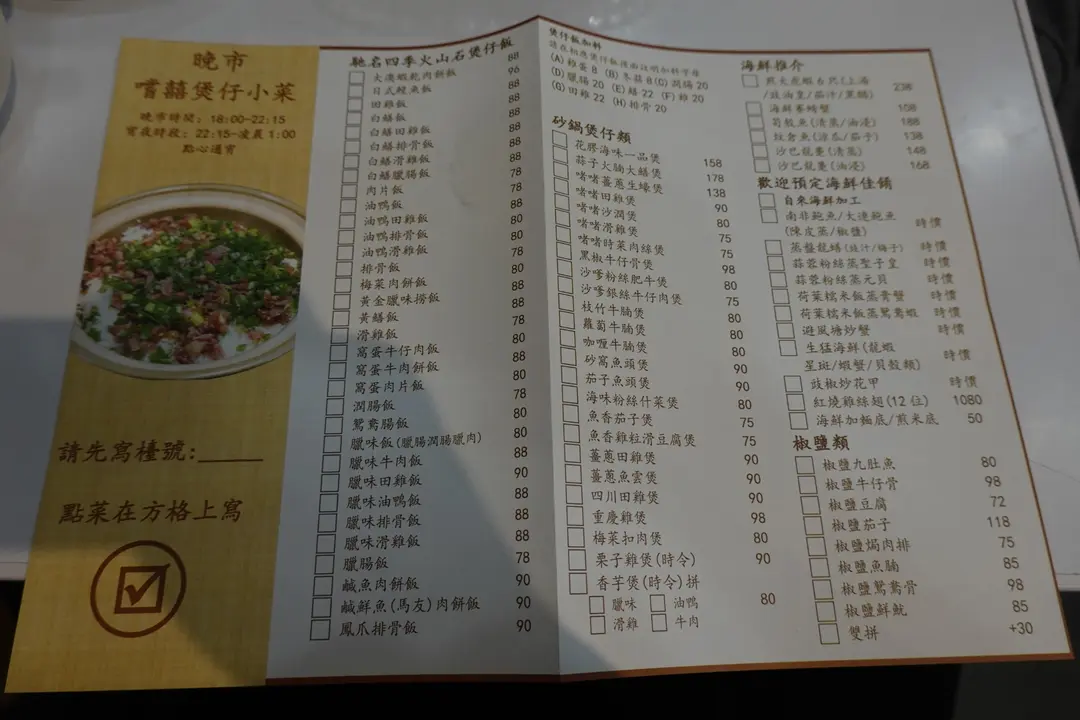 晚市
嚐囍煲仔小菜
晚市時間: 18:00-22:15
宵夜時段: 22:15-凌晨1:00
點心通宵
請先寫檯號:_____
點菜在方格上寫
馳名四季火山石煲仔飯
大連蝦乾肉餅飯 88
日式鰻魚飯 96
田雞飯 88
白鱔飯 88
白鱔田雞飯 88
白鱔排骨飯 88
白鱔滑雞飯 88
白鱔臘腸飯 88
肉片飯 78
油鴨飯 78
油鴨田雞飯 88
油鴨排骨飯 88
油鴨滑雞飯 80
排骨飯 78
梅菜肉餅飯 80
黃金臘味撈飯 88
黃鱔飯 88
滑雞飯 78
窩蛋牛仔肉飯 80
窩蛋牛肉餅飯 88
窩蛋肉片飯 80
潤腸飯 78
鴛鴦腸飯 80
臘味飯(臘腸潤腸臘肉) 80
臘味牛肉飯 88
臘味田雞飯 90
臘味油鴨飯 88
臘味排骨飯 88
臘味滑雞飯 88
臘腸飯 78
鹹魚肉餅飯 90
鹹鮮魚(馬友)肉餅飯 90
鳳爪排骨飯 90
煲仔飯加料
請在相應煲仔飯後面註明加料字母
(A) 雞蛋 8 (B) 冬菇 8 (C) 潤腸 20
(D) 臘腸 20 (E) 鱔 22 (F) 雞 20
(G) 田雞 22 (H) 排骨 20
砂鍋煲仔類
花膠海味一品煲 158
蒜子火腩大鱔煲 178
啫啫薑蔥生蠔煲 138
啫啫田雞煲 90
啫啫沙潤煲 80
啫啫滑雞煲 75
啫啫時菜肉絲煲 75
黑椒牛仔骨煲 98
沙嗲粉絲肥牛煲 80
沙嗲銀絲牛仔肉煲 75
枝竹牛腩煲 80
蘿蔔牛腩煲 80
咖喱牛腩煲 80
砂窩魚頭煲 90
茄子魚頭煲 90
海味粉絲什菜煲 80
魚香茄子煲 75
魚香雞粒滑豆腐煲 75
薑蔥田雞煲 90
薑蔥魚雲煲 90
四川田雞煲 90
重慶雞煲 98
梅菜扣肉煲 80
栗子雞煲(時令) 90
香芋煲(時令)拼 80
臘味 油鴨
滑雞 牛肉
海鮮推介
煎大虎蝦 6 只(上湯 238
/豉油皇/茄汁/黑椒)
海鮮賽螃蟹 108
筍殼魚(清蒸/油浸) 188
烚倉魚(涼瓜/茄子) 138
沙巴龍躉(清蒸) 148
沙巴龍躉(油浸) 168
歡迎預定海鮮佳餚
自來海鮮加工
南非鮑魚/大連鮑魚 時價
(陳皮蒸/椒鹽)
蒸盤龍鱔(豉汁/梅子) 時價
蒜蓉粉絲蒸聖子皇 時價
蒜蓉粉絲蒸元貝 時價
荷葉糯米飯蒸膏蟹 時價
荷葉糯米飯蒸鴛鴦蝦 時價
避風塘炒蟹 時價
生猛海鮮(龍蝦 時價
星斑/蝦蟹/貝殼類)
豉椒炒花甲 時價
紅燒雞絲翅(12 位) 1080
海鮮加麵底/煎米底 50
椒鹽類
椒鹽九肚魚 80
椒鹽牛仔骨 98
椒鹽豆腐 72
椒鹽茄子 118
椒鹽焗肉排 75
椒鹽魚腩 85
椒鹽鴛鴦骨 98
椒鹽鮮魷 85
雙拼 +30